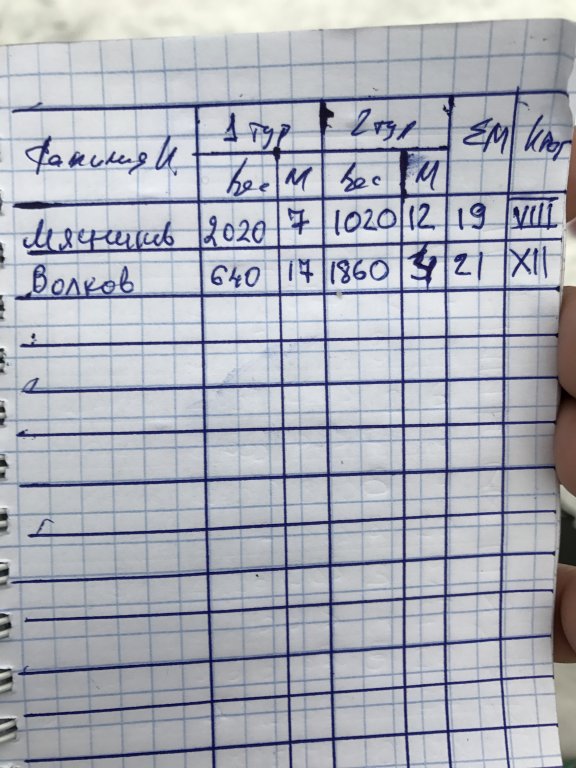 Фамилия И. 1 тур 2 тур ΣМ
Вес М Вес М
Мясников 2020 7 1020 12 19 VIII
Волков 640 17 1860 4 21 XII